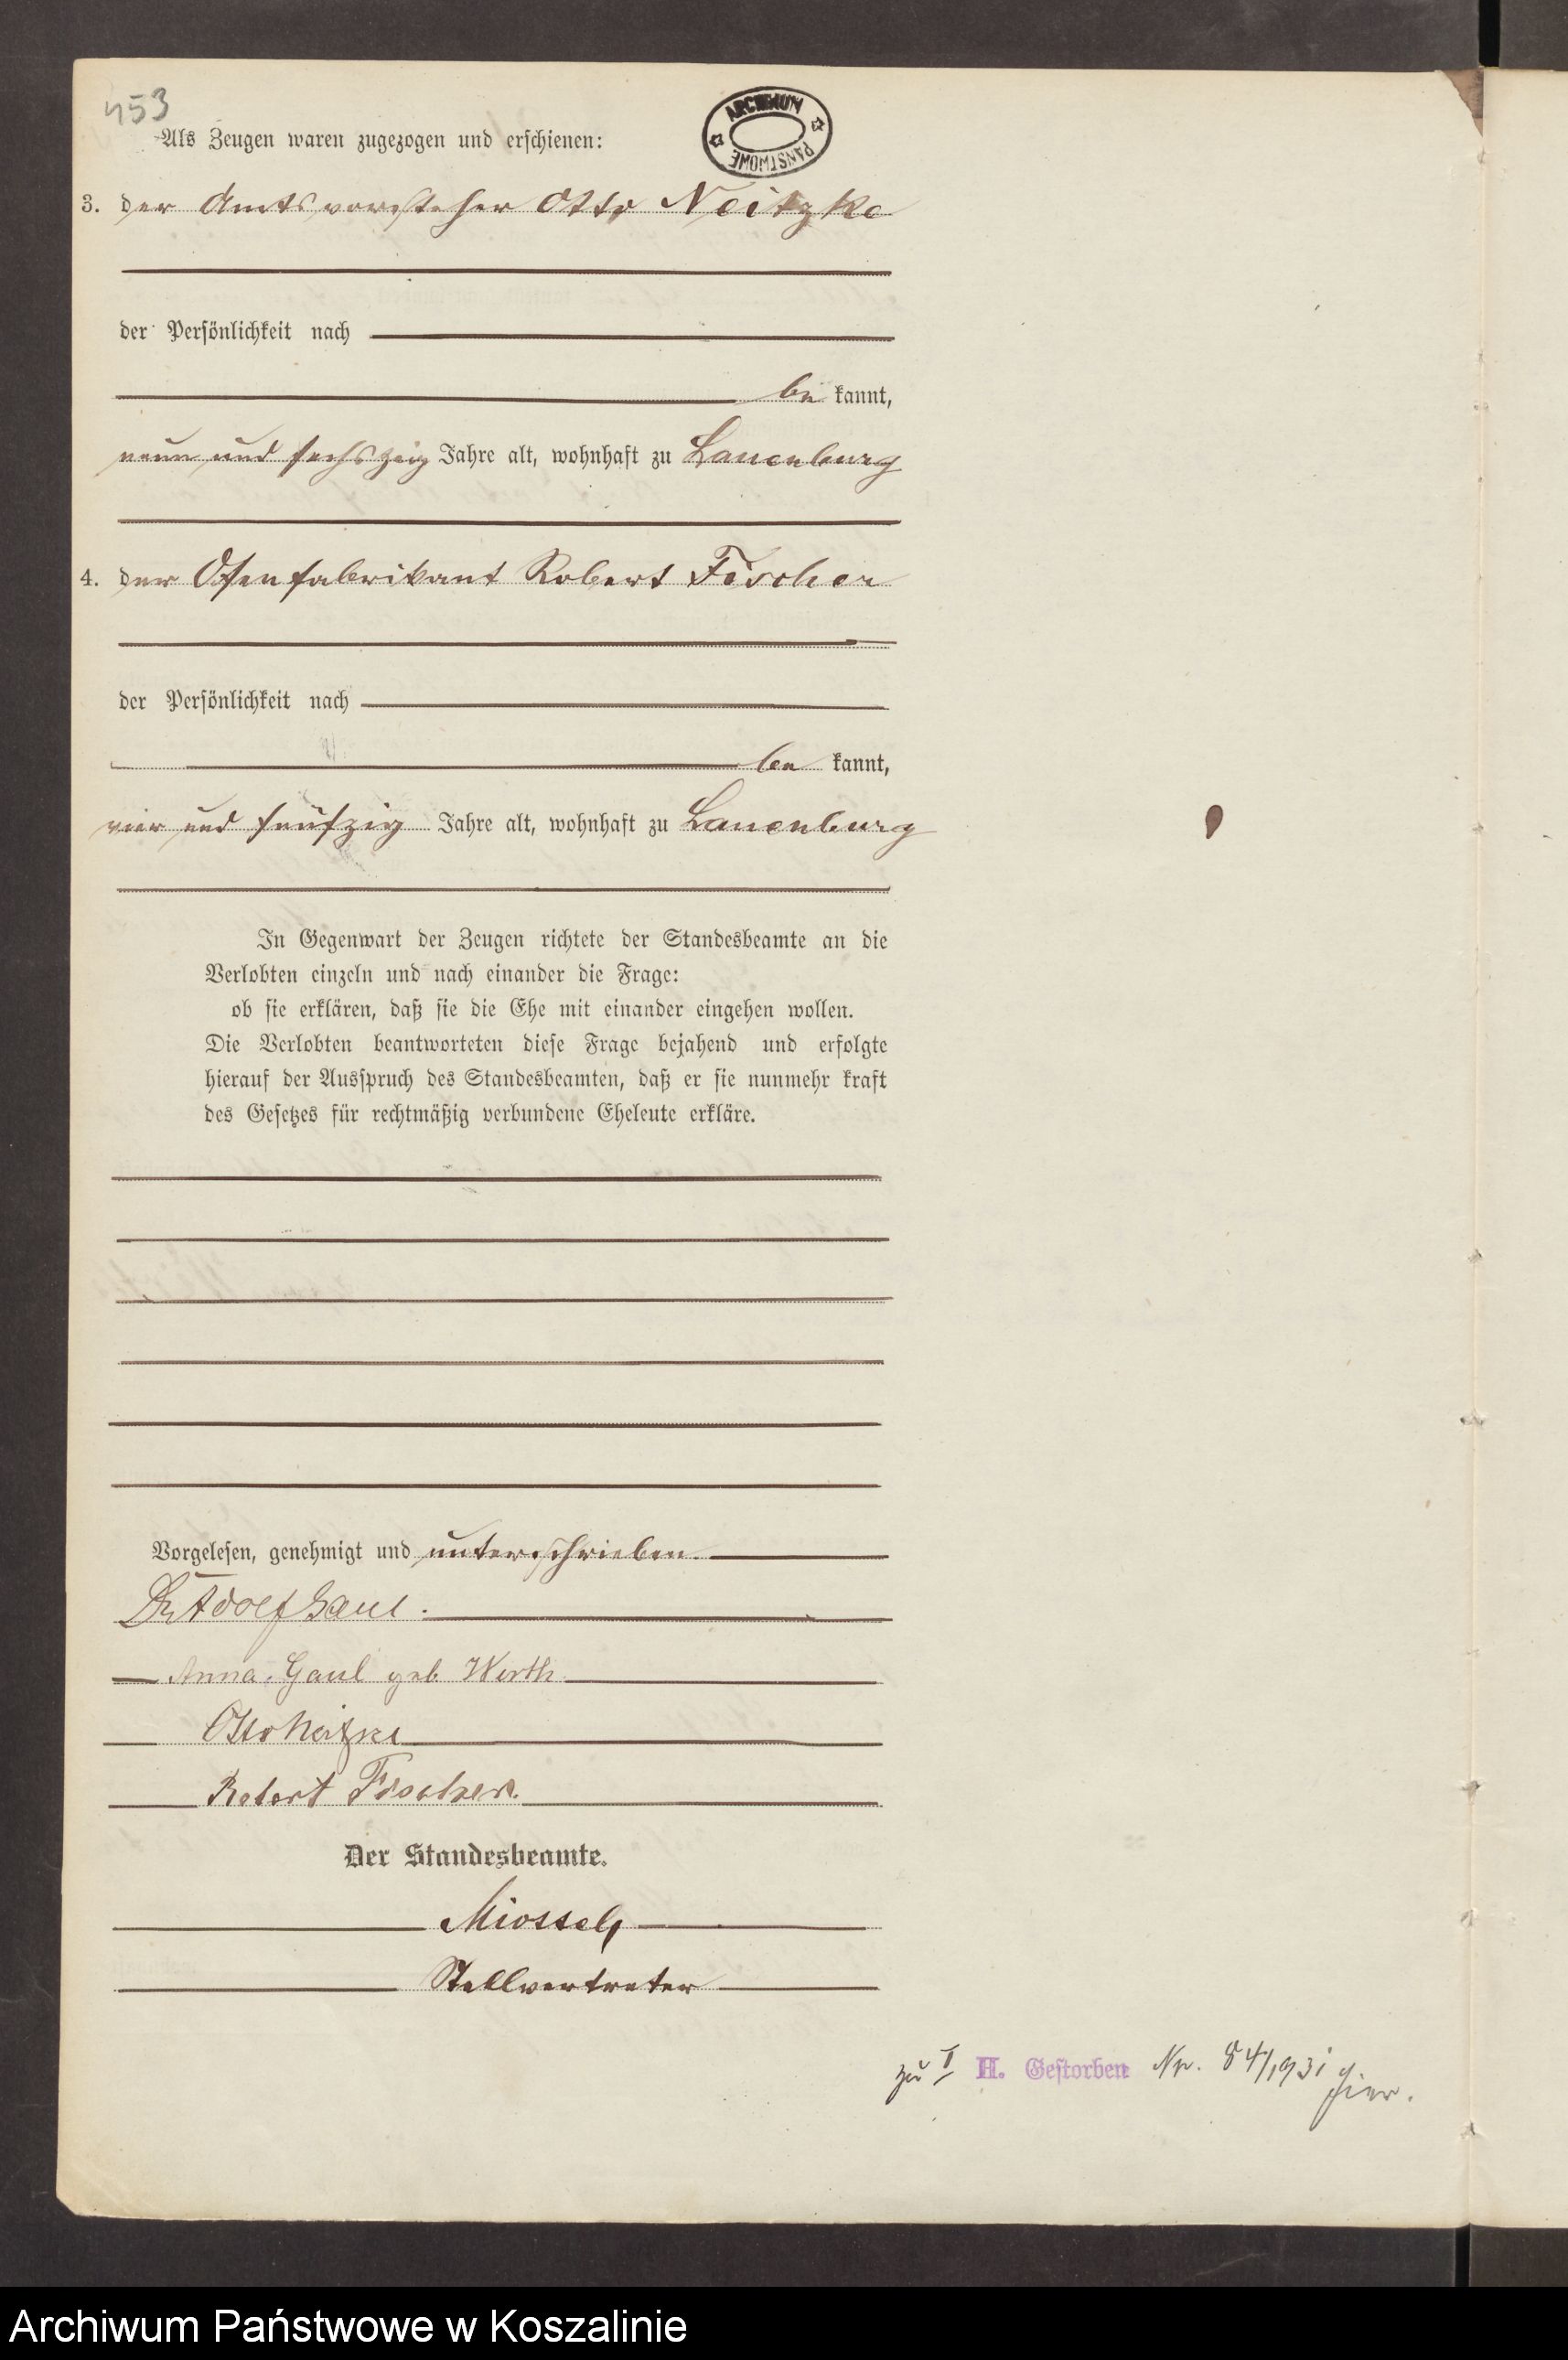 453
ARCHIWUM PAŃSTWOWE
Als Zeugen waren zugezogen und erschienen:
3. der Amtsvorsteher Otto Neitzke
der Persönlichkeit nach
be kannt,
neun und sechszig Jahre alt, wohnhaft zu Lauenburg
4. der Ofenfabrikant Robert Fischer
der Persönlichkeit nach
be kannt,
vier und fünfzig Jahre alt, wohnhaft zu Lauenburg
In Gegenwart der Zeugen richtete der Standesbeamte an die
Verlobten einzeln und nach einander die Frage:
ob sie erklären, daß sie die Ehe mit einander eingehen wollen.
Die Verlobten beantworteten diese Frage bejahend und erfolgte
hierauf der Ausspruch des Standesbeamten, daß er sie nunmehr kraft
des Gesetzes für rechtmäßig verbundene Eheleute erkläre.
Vorgelesen, genehmigt und unterschrieben.
Dr. Adolf Gaul.
Anna Gaul geb. Wirth
Otto Neitzke
Robert Fischer.
Der Standesbeamte.
Stellvertreter
zu I H. Gestorben Nr. 84/1931 hier.
Archiwum Państwowe w Koszalinie